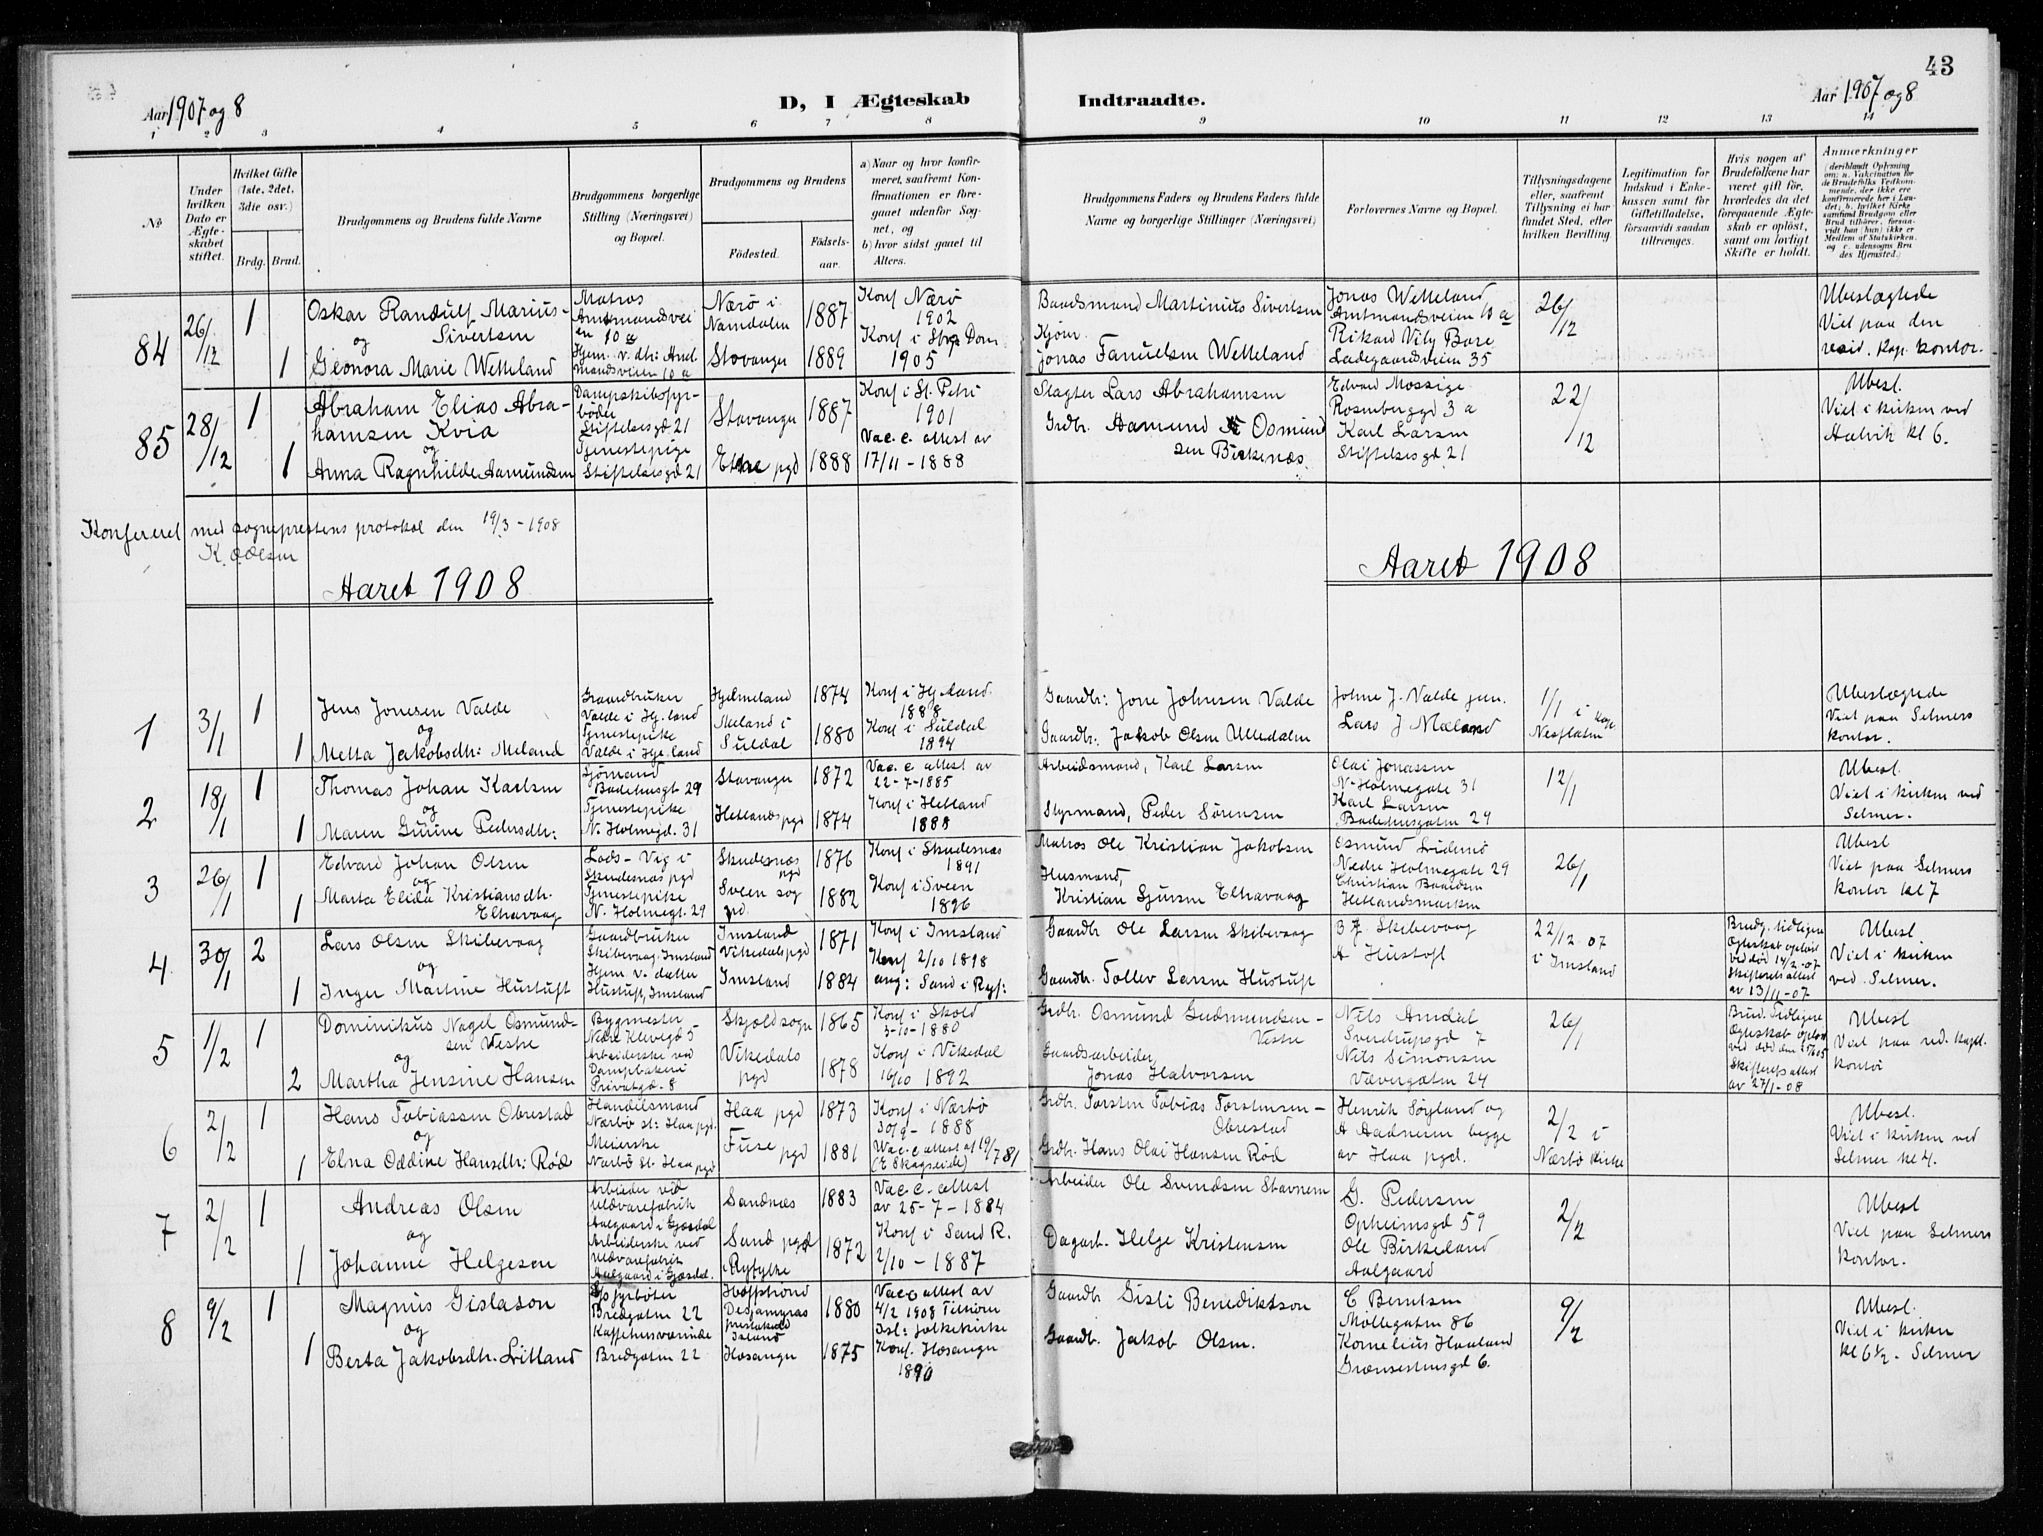 43
Aar 1907 og 8
D, I Ægteskab
Indtraadte.
Aar 1907 og 8
1 2 3 4 5 6 7 8 9 10 11 12 13 14
No
Under hvilken Dato er Ægteskabet stiftet.
Hvilket Gifte (1ste, 2det, 3die osv.)
Brdg. Brud.
Brudgommens og Brudens fulde Navne
Brudgommens borgerlige Stilling (Næringsvei) og Bopæl.
Brudgommens og Brudens
Fødested.
Fødselsaar.
a) Naar og hvor konfirmeret, saafremt Konfirmationen er foregaaet udenfor Sognet, og
b) hvor sidst gaaet til Alters.
Brudgommens Faders og Brudens Faders fulde Navne og borgerlige Stillinger (Næringsvei)
Forlovernes Navne og Bopæl.
Tillysningsdagene eller, saafremt Tillysning ei har fundet Sted, efter hvilken Bevilling
Legitimation for Indskud i Enkekassen samt for Giftetilladelse, forsaavidt saadan tiltrænges.
Hvis nogen af Brudefolkene har været gift før, hvorledes da det foregaaende Ægteskab er opløst, samt om lovligt Skifte er holdt.
Anmerkninger
84 26/12 1 Oskar Randulf Marius Sivertsen
Matros Amtmandsveien 10 a
Nærø i Namdalen 1887 Konf Nærø 1902
Baadsmand Martinius Sivertsen
Jonas Wetteland Amtmandsveien 10 a
26/12
Ubeslægtede
Viet paa den resid. kap. kontor.
og
1 Geonora Marie Wetteland
Stavanger 1889 1905
Jonas Fanuelsen Wetteland
Rikard Vily Bore
Ladegaardsveien 35
85 28/12 1 Abraham Elias Abrahamsen Kvia
Dampskibsfyrbøder Stiftelsesgd 21
Stavanger 1887 Konf i St. Petri 1901
Slagter Lars Abrahamsen
Edvard Mossige
Rosenberggd 3 a
22/12
Ubesl.
Viet i kirken ved
kl 6.
og
1 Anna Ragnhilde Aamundsen
Tjenestepige Stiftelsesgd 21
Etne pgd 1888 Vac. c. attest av 17/11 - 1888
Grdbr. Aamund Osmundsen Birkenæs.
Karl Larsen
Stiftelsesgd 21
Konfereret med sogneprestens protokol den 19/3 - 1908
Aaret 1908
Aaret 1908
1 3/1 1 Jens Jonesen Valde
Gaardbruker Valde i Hj.land
Hjelmeland 1874 Konf i Hj.land. 1888
Gaardbr: Jone Johnsen Valde
Johne J. Valde jun.
1/1 i
Ubeslægtede
Viet paa Selmers kontor.
og
1 Metta Jakobsdtr: Meland
Tjenestepike Valde i Hje.land
Meland i Suldal 1880 Konf i Suldal 1894
Gaardbr: Jakob Olsen Ulledalen
Lars J Mæland
2 18/1 1 Thomas Johan Karlsen
Sjømand Badehusgt 29
Stavanger 1872 Vac. c attest av 22-7-1885
Arbeidsmand, Karl Larsen
Olai Jonassen
N. Holmegate 31
12/1
Ubesl.
Viet i kirken ved Selmer.
og
1 Maren Gurine Pedersdtr:
Tjenestepike N. Holmegd. 31
Hetlands pgd 1874 Konf i Hetland 1888
Styrmand, Peder Sørensen
Karl Larsen
Badehusgaten 29
3 26/1 1 Edvard Johan Olsen
Lods - Vig i Skudesnes pgd
Skudesnæs pgd 1876 Konf i Skudesnæs 1891
Matros Ole Kristian Jakobsen
Nedre Holmegate 29
26/1
Ubesl
Viet paa Selmers kontor kl 7
og
1 Marta Elida Kristiansdtr. Elhavaag
Tjenestepike N. Holmegt. 29
Sveen sog pd. 1882 Konf i Sveen 1896
Husmand, Kristian Sjursen Elhavaag
Christian Baardsen
Hetlandsmarken
4 30/1 2 Lars Olsen Skibevaag
Gaardbruker Skibevaag, Imsland
Imsland Vikedals pgd 1871 Konf i Imsland
Gaardbr Ole Larsen Skibevaag
B J Skibevaag
22/12. 07 i Imsland
Brudg. tidligere Ægteskab opløst ved død 14/2-07 Skifteretsattest av 13/11-07
Ubesl
Viet i kirken ved Selmer.
og
1 Inger Martine Hustuft
Hjem. v. datter Hustuft, Imsland
Imsland 1884 Konf 2/10 1898 ang: Sand i Ryf:
Gaardbr: Tollev Larsen Hustuft
A Hustoft
5 1/2 1 Dominikus Nagel Osmundsen Vestre
Bygmester Nedre Klevegd 5
Skjold sogn 1865 Konf i Skold 3-10-1880
Grdbr. Osmund Gudmundsen Vestre
Nils Amdal
Sverdrupsgd 7
26/1
Brud. Tidligere Ægteskab opløst
Skifteretsattest av 27/1-08
Ubesl
Viet paa red. kapl. kontor
og
2 Martha Jensine Hansen
Arbeiderske ved Dampbakeri Privatgd. 8
Vikedals pgd 1878 Konf i Vikedal 16/10 1892
Gaardsarbeider, Jonas Halvorsen
Nils Simonsen
Vævergaten 24
6 2/2 1 Hans Tobiassen Obrestad
Handelsmand Nærbø st: Haa pgd.
Haa pgd 1873 Konf i Nærbø 30/9 - 1888
Grdbr. Torsten Tobias Torstensen Obrestad
Henrik Søyland og
A Aadneim begge
av Haa pgd.
2/2 i Nærbø kirke
Ubesl.
Viet i kirken ved Selmer kl 4.
og
1 Elna Oddine Hansdtr: Rød
Meierske Nærbø St. Haa pgd
Fuse pgd 1881 Vac.c attest af 19/7 81 (E Skagseide)
Grdbr. Hans Olai Hansen Rød
7 2/2 1 Andreas Olsen
Arbeider ved Uldvarefabrik Aalgaard i Gjesdal
Sandnæs 1883 Vac. c. attest av 25-7-1884
Arbeider Ole Svendsen Stavnem
G. Pedersen
Opheimsgd 59
2/2
Ubesl
Viet paa Selmers kontor.
og
1 Johanne Helgesen
Arbeiderske ved Uldvarefabrik Aalgaard i Gjesdal.
Sand pgd i Ryfylke 1872 Konf i Sand R. 2/10 - 1887
Dagarb. Helge Kristensen
Ole Birkeland
Aalgaard
8 9/2 1 Magnus Gislason
Bredgaten 22
Island 1880 Vacc attest av 4/2 1908 Tilhører Isl: folkekirke
Gaardbr Gisli Benediktson
C Berntsen
Møllegaten 86
9/2
Ubesl.
Viet i kirken kl 6½. Selmer
og
1 Berta Jakobsdtr. Litland
Kaffehusværtinde Bredgaten 22
Hosanger 1875 Konf. Hosanger 1890
Gaardbr. Jakob Olsen.
Kornelius Haaland
Grænsestensgd 6.